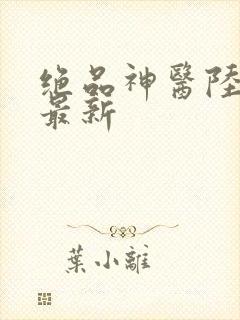 絕品神醫陸
最新
葉小離